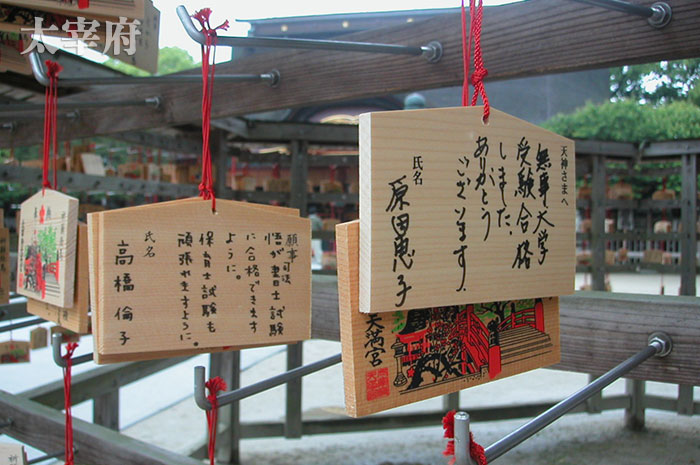 太宰府
天神さまへ
無事大学
受験合格
しました、
ありがとう
ございます、
氏名
原田恵子
天満宮
願事司法
悟が書士試験
に合格できます
ように。
保育士試験も
頑張れますように。
氏名
高橋倫子